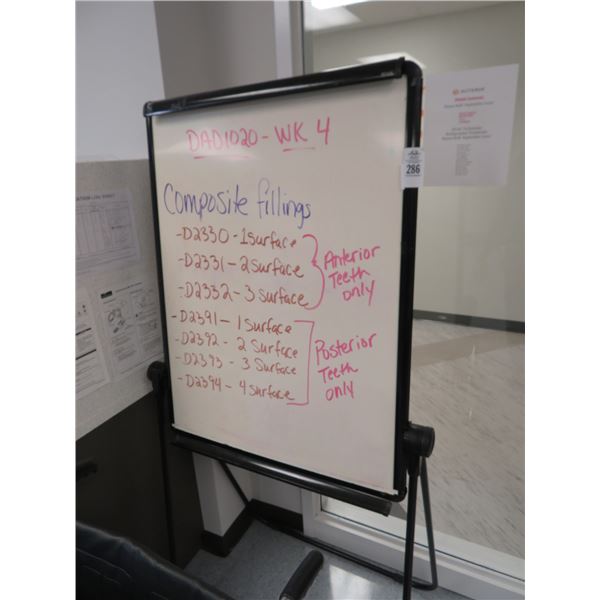 DAD1020 - WK 4
Composite fillings
- D2330 - 1 Surface
- D2331 - 2 Surface
- D2332 - 3 Surface
Anterior
Teeth
only
- D2391 - 1 Surface
- D2392 - 2 Surface
- D2393 - 3 Surface
- D2394 - 4 Surface
Posterior
Teeth
only
286